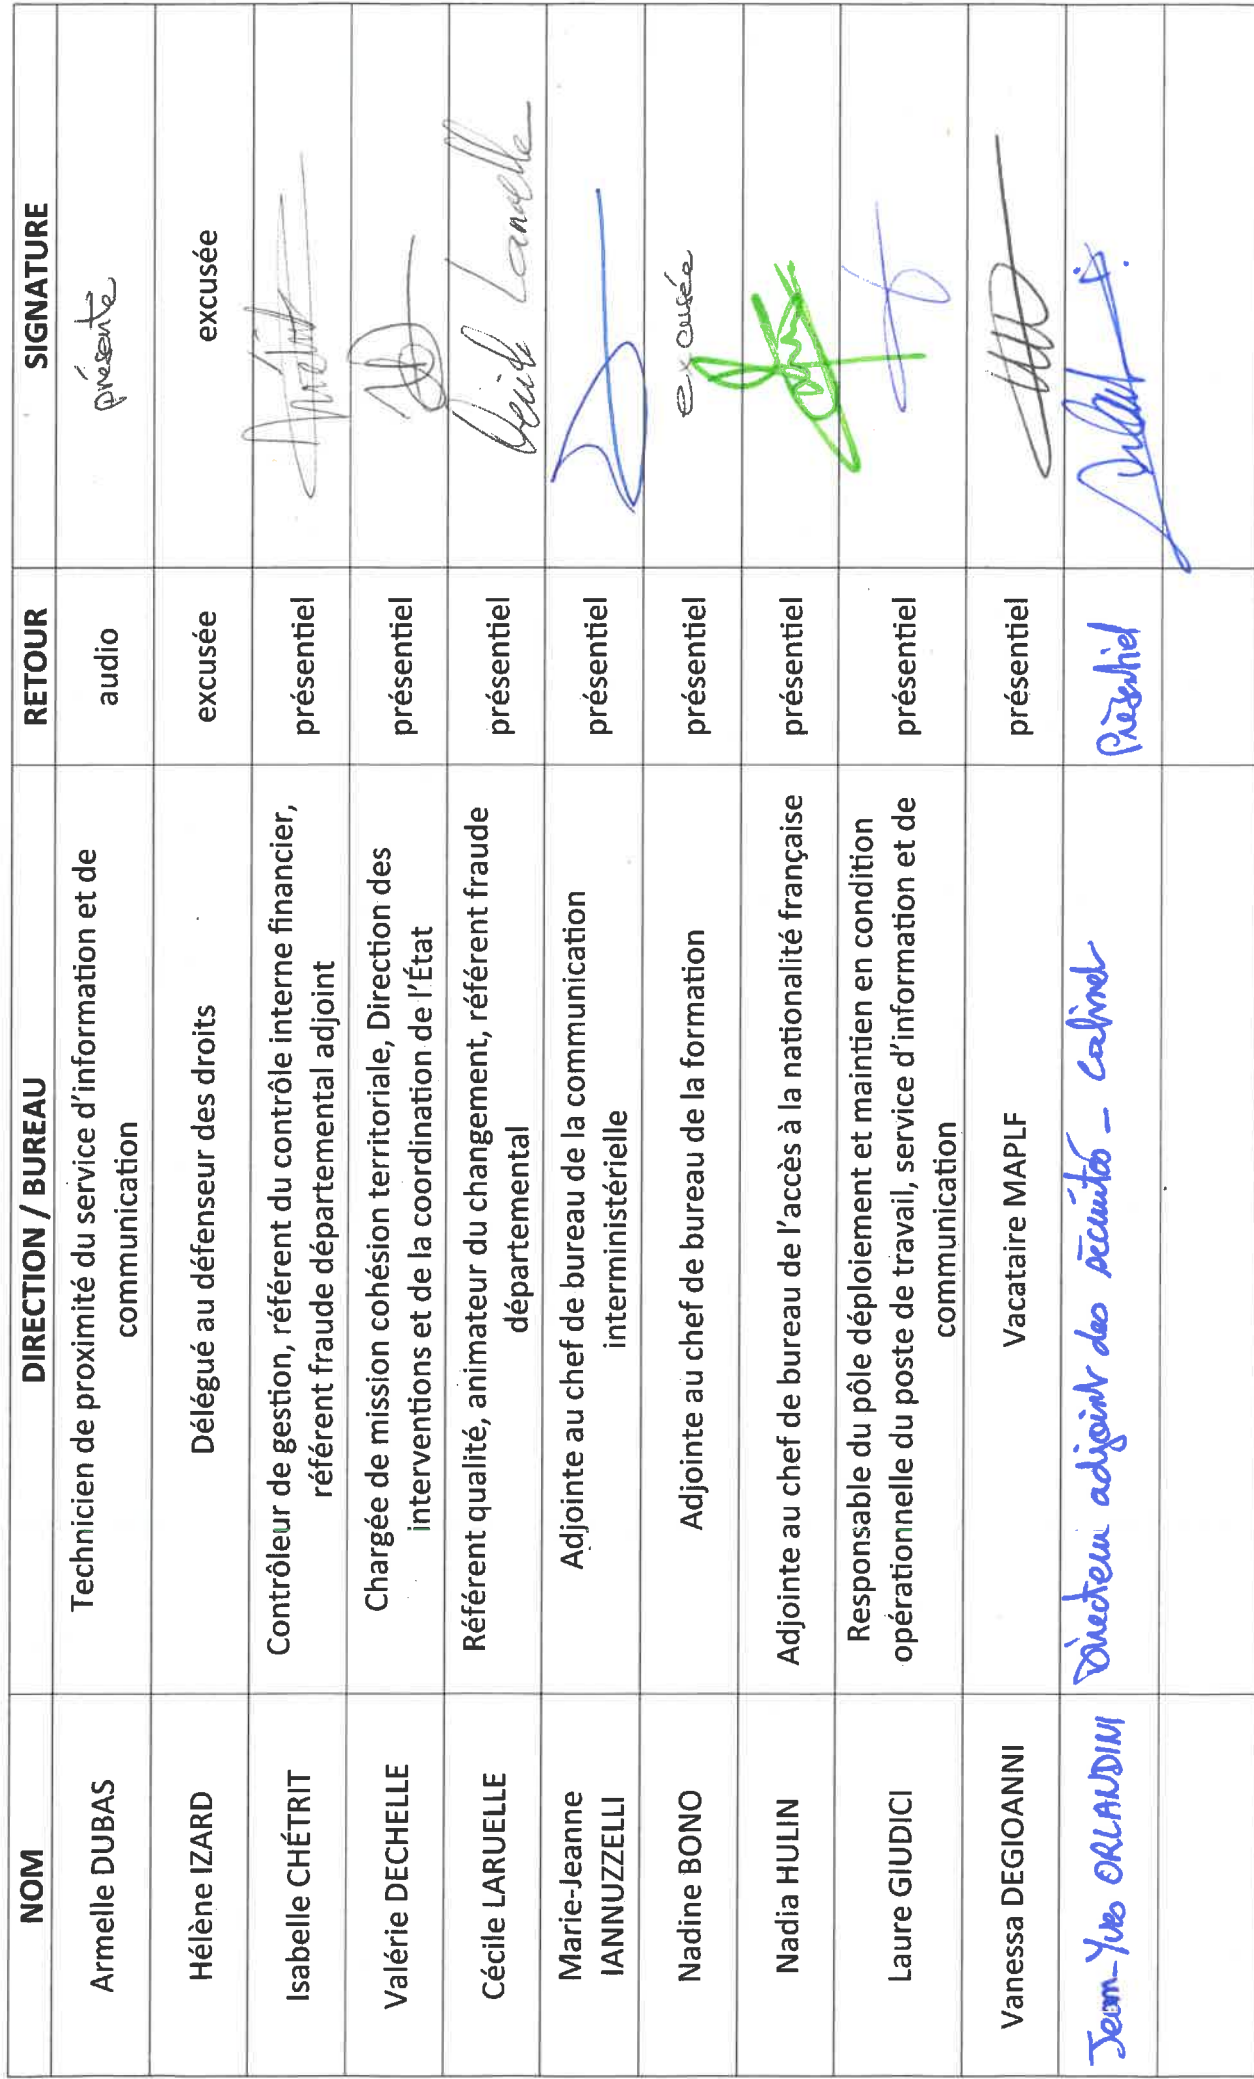 NOM DIRECTION / BUREAU RETOUR SIGNATURE
Armelle DUBAS Technicien de proximité du service d'information et de communication audio présente
Hélène IZARD Délégué au défenseur des droits excusée excusée
Isabelle CHÉTRIT Contrôleur de gestion, référent du contrôle interne financier,
référent fraude départemental adjoint présentiel
Valérie DECHELLE Chargée de mission cohésion territoriale, Direction des
interventions et de la coordination de l'État présentiel
Cécile LARUELLE Référent qualité, animateur du changement, référent fraude
départemental présentiel
Marie-Jeanne
IANNUZZELLI Adjointe au chef de bureau de la communication
interministérielle présentiel
Nadine BONO Adjointe au chef de bureau de la formation présentiel excusée
Nadia HULIN Adjointe au chef de bureau de l'accès à la nationalité française présentiel
Laure GIUDICI Responsable du pôle déploiement et maintien en condition
opérationnelle du poste de travail, service d'information et de
communication présentiel
Vanessa DEGIOANNI Vacataire MAPLF présentiel
Jean-Yves ORLANDINI Directeur adjoint des sécurités - Cabinet Présentiel